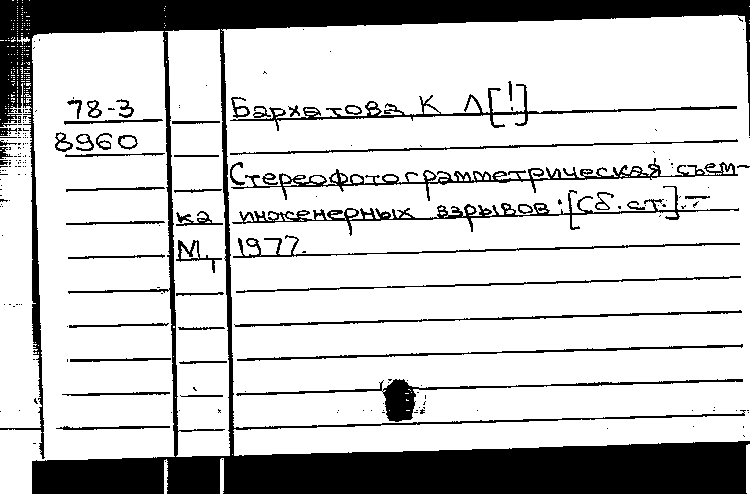 78-3 Бархатова, К Л [!]
8960
Стереофотограмметрическая съем-
ка инженерных взрывов: [Сб. ст.]. –
М., 1977.